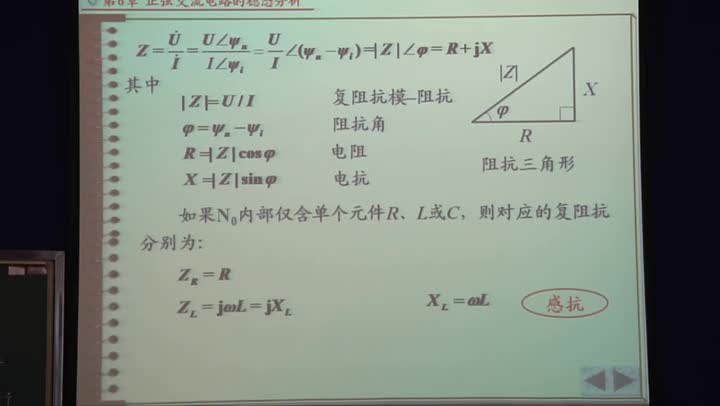 第6章 正弦交流电路的稳态分析
Z = U̇/İ = U∠ψu/I∠ψi = U/I ∠(ψu−ψi)=|Z|∠φ = R+jX
其中
|Z|=U/I 复阻抗模—阻抗
φ=ψu−ψi 阻抗角
R=|Z|cosφ 电阻
X=|Z|sinφ 电抗
|Z|
X
φ
R
阻抗三角形
如果N0内部仅含单个元件R、L或C，则对应的复阻抗
分别为：
ZR=R
ZL=jωL=jXL XL=ωL 感抗